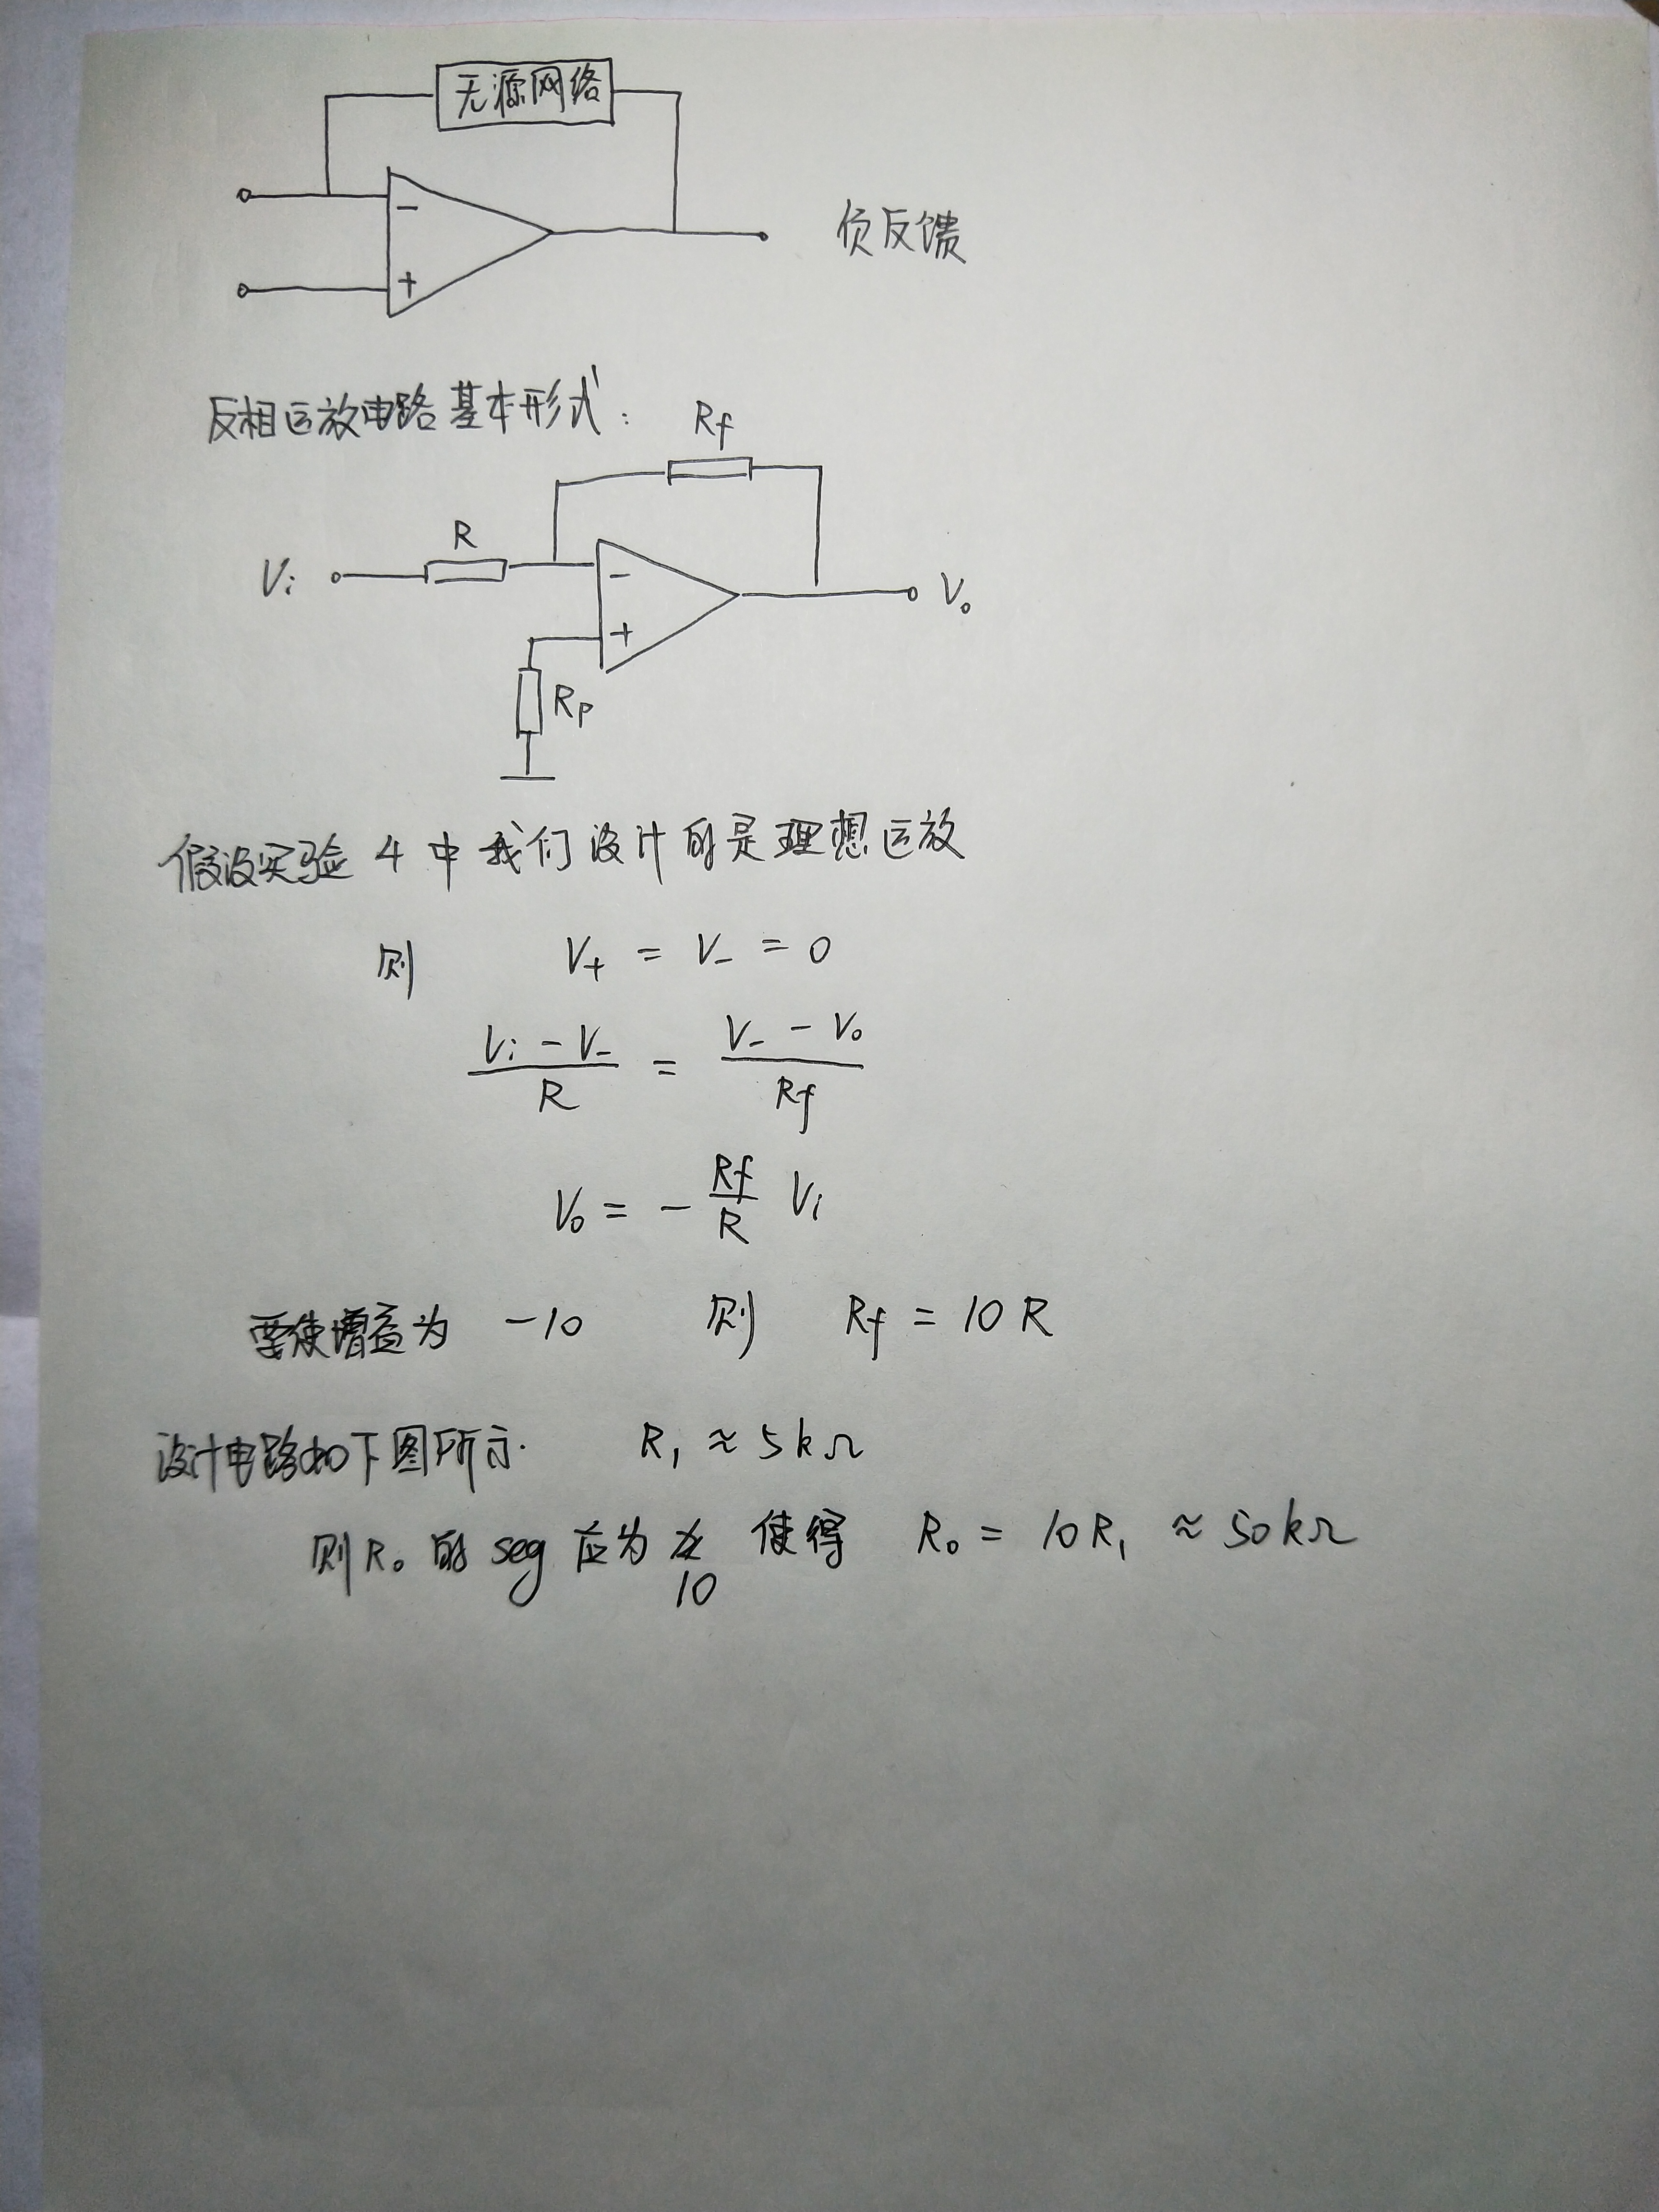 无源网络
-
+
负反馈
反相运放电路基本形式:
Rf
R
Vi
-
+
Vo
Rp
假设实验4中我们设计的是理想运放
则 V+ = V- = 0
(Vi - V-)/R = (V- - Vo)/Rf
Vo = - Rf/R Vi
要使增益为 -10 则 Rf = 10R
设计电路如下图所示. R1 ≈ 5kΩ
则R0的seg应为 使得 R0 = 10R1 ≈ 50kΩ
10